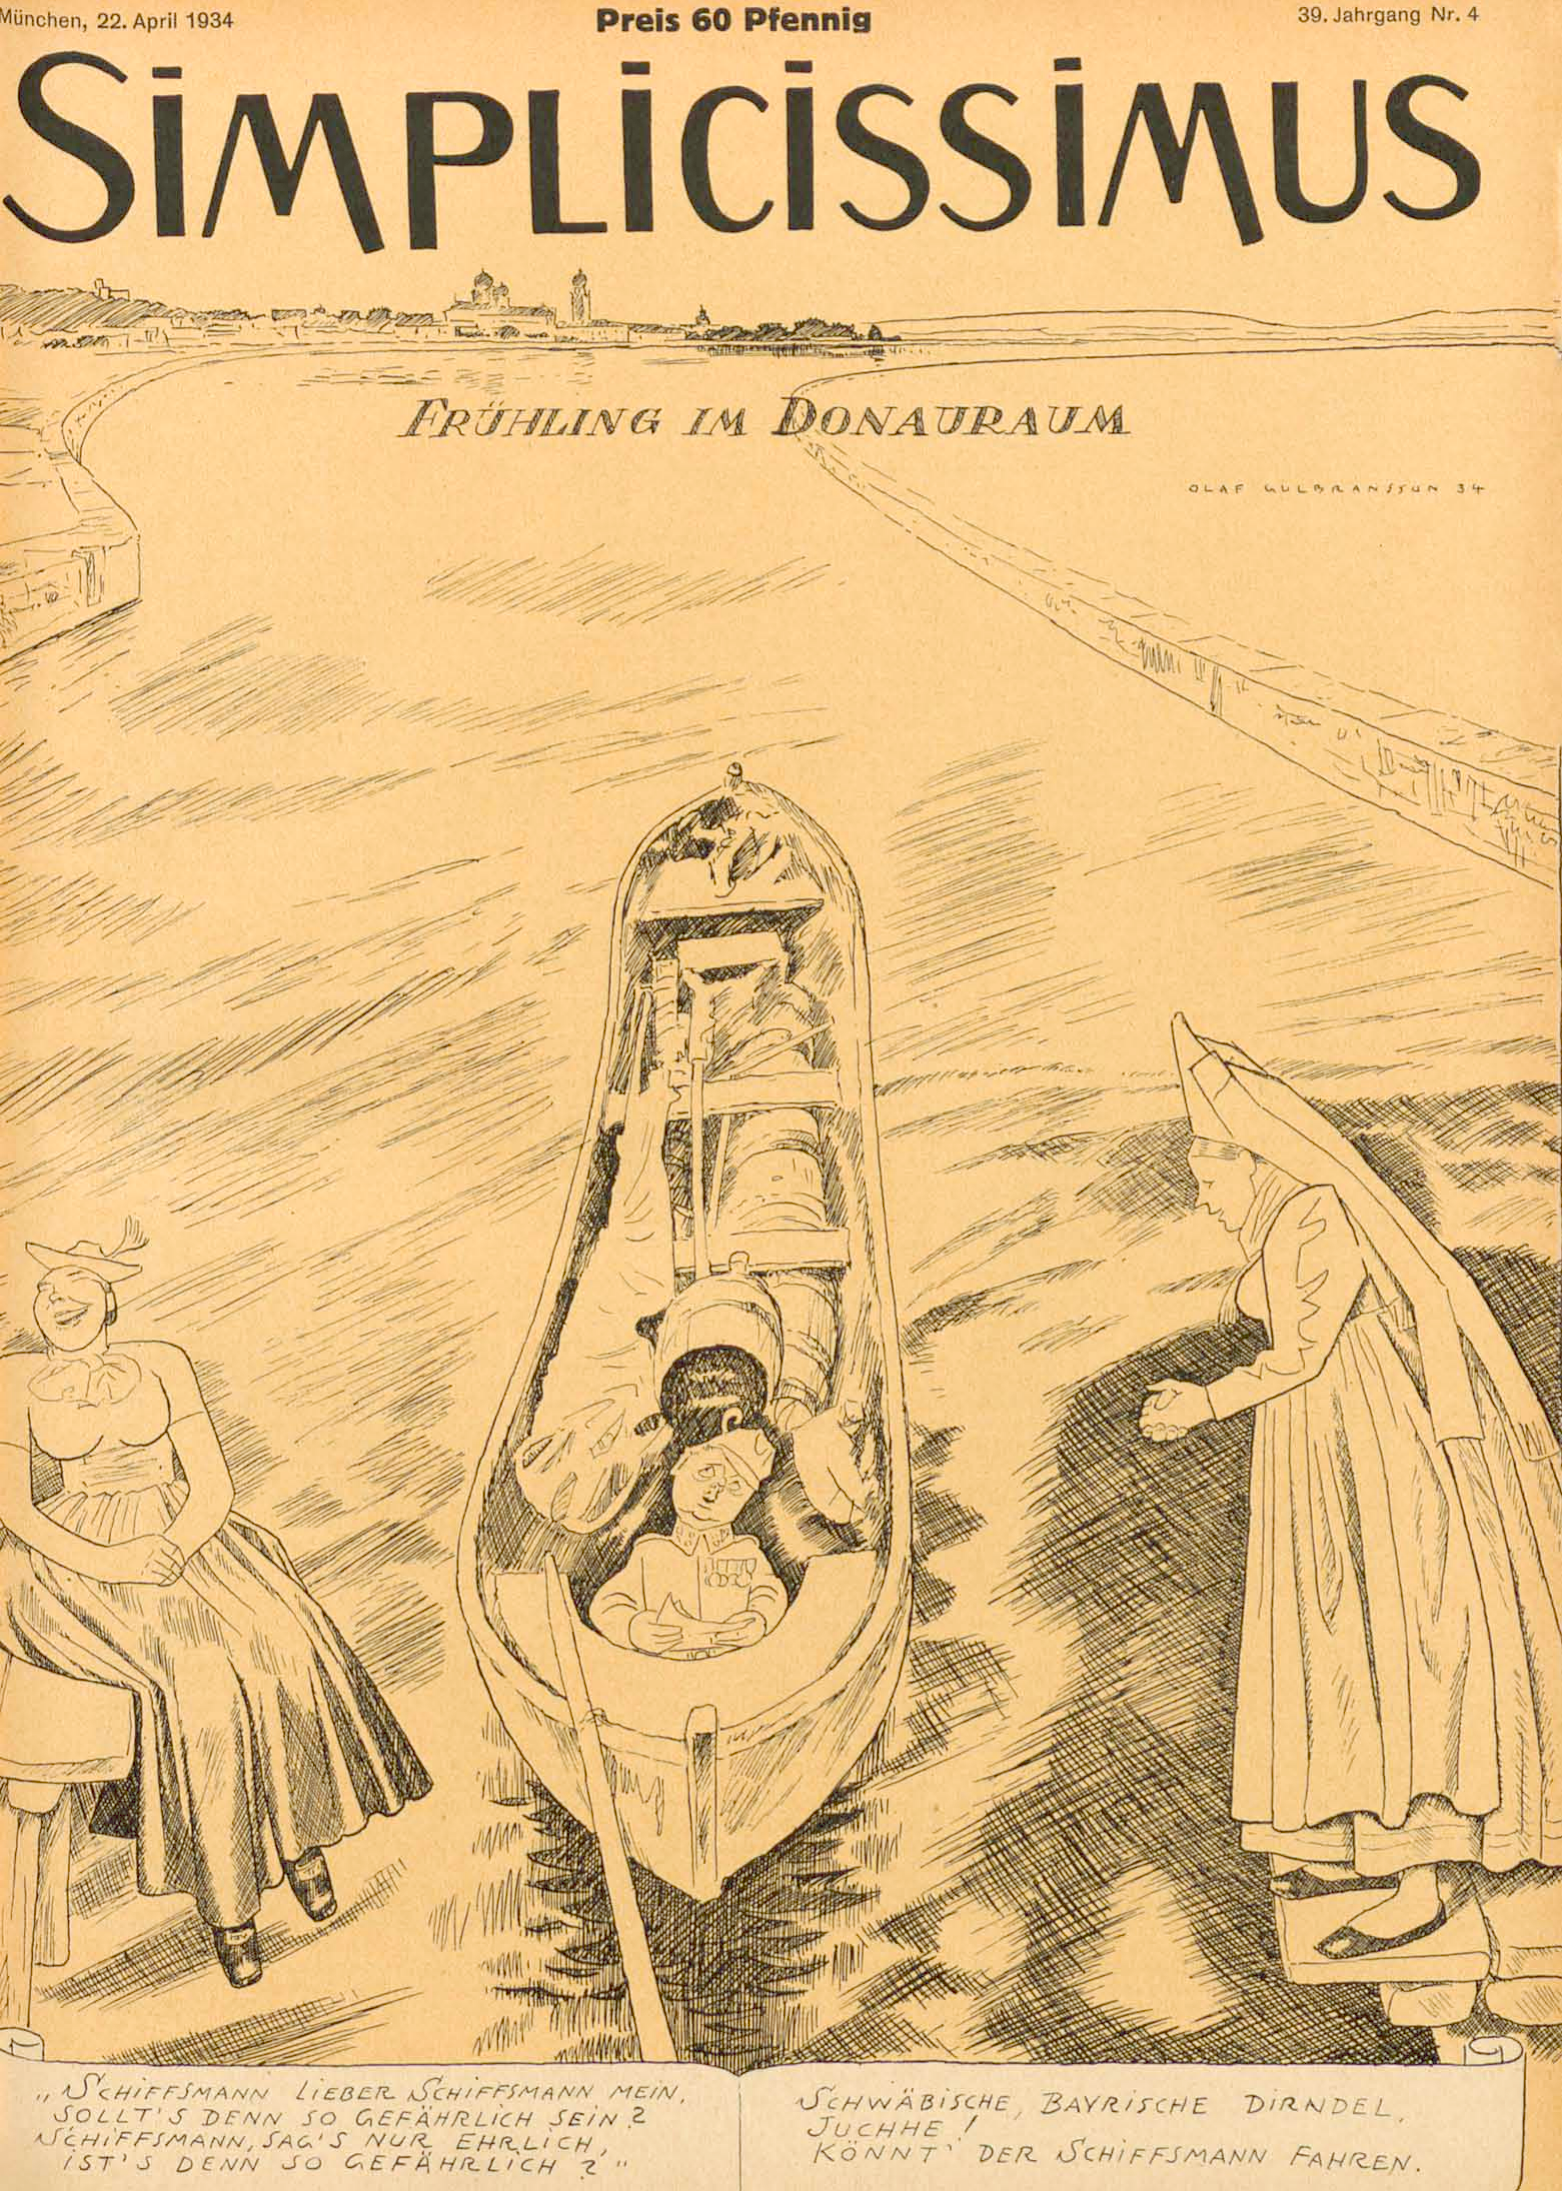 München, 22. April 1934
Preis 60 Pfennig
39. Jahrgang Nr. 4
SIMPLICISSIMUS
FRÜHLING IM DONAURAUM
OLAF GULBRANSSON 34
„SCHIFFSMANN LIEBER SCHIFFSMANN MEIN,
SOLLT'S DENN SO GEFÄHRLICH SEIN?
SCHIFFSMANN, SAG'S NUR EHRLICH,
IST'S DENN SO GEFÄHRLICH?"
SCHWÄBISCHE, BAYRISCHE DIRNDEL,
JUCHHE!
KÖNNT' DER SCHIFFSMANN FAHREN.